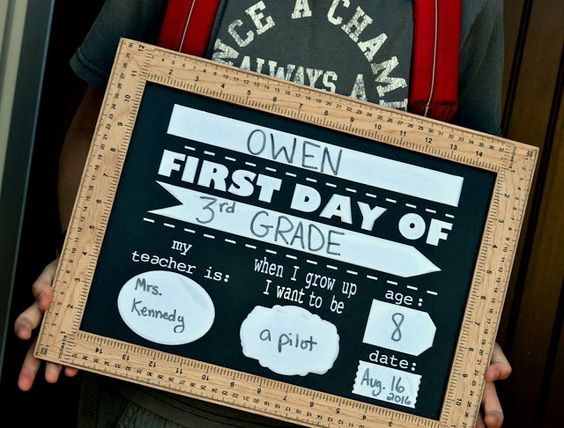 ONCE A CHAMP
ALWAYS A
OWEN
FIRST DAY OF
3rd GRADE
my
teacher is:
Mrs.
Kennedy
when I grow up
I want to be
a pilot
age:
8
date:
Aug. 16
2016